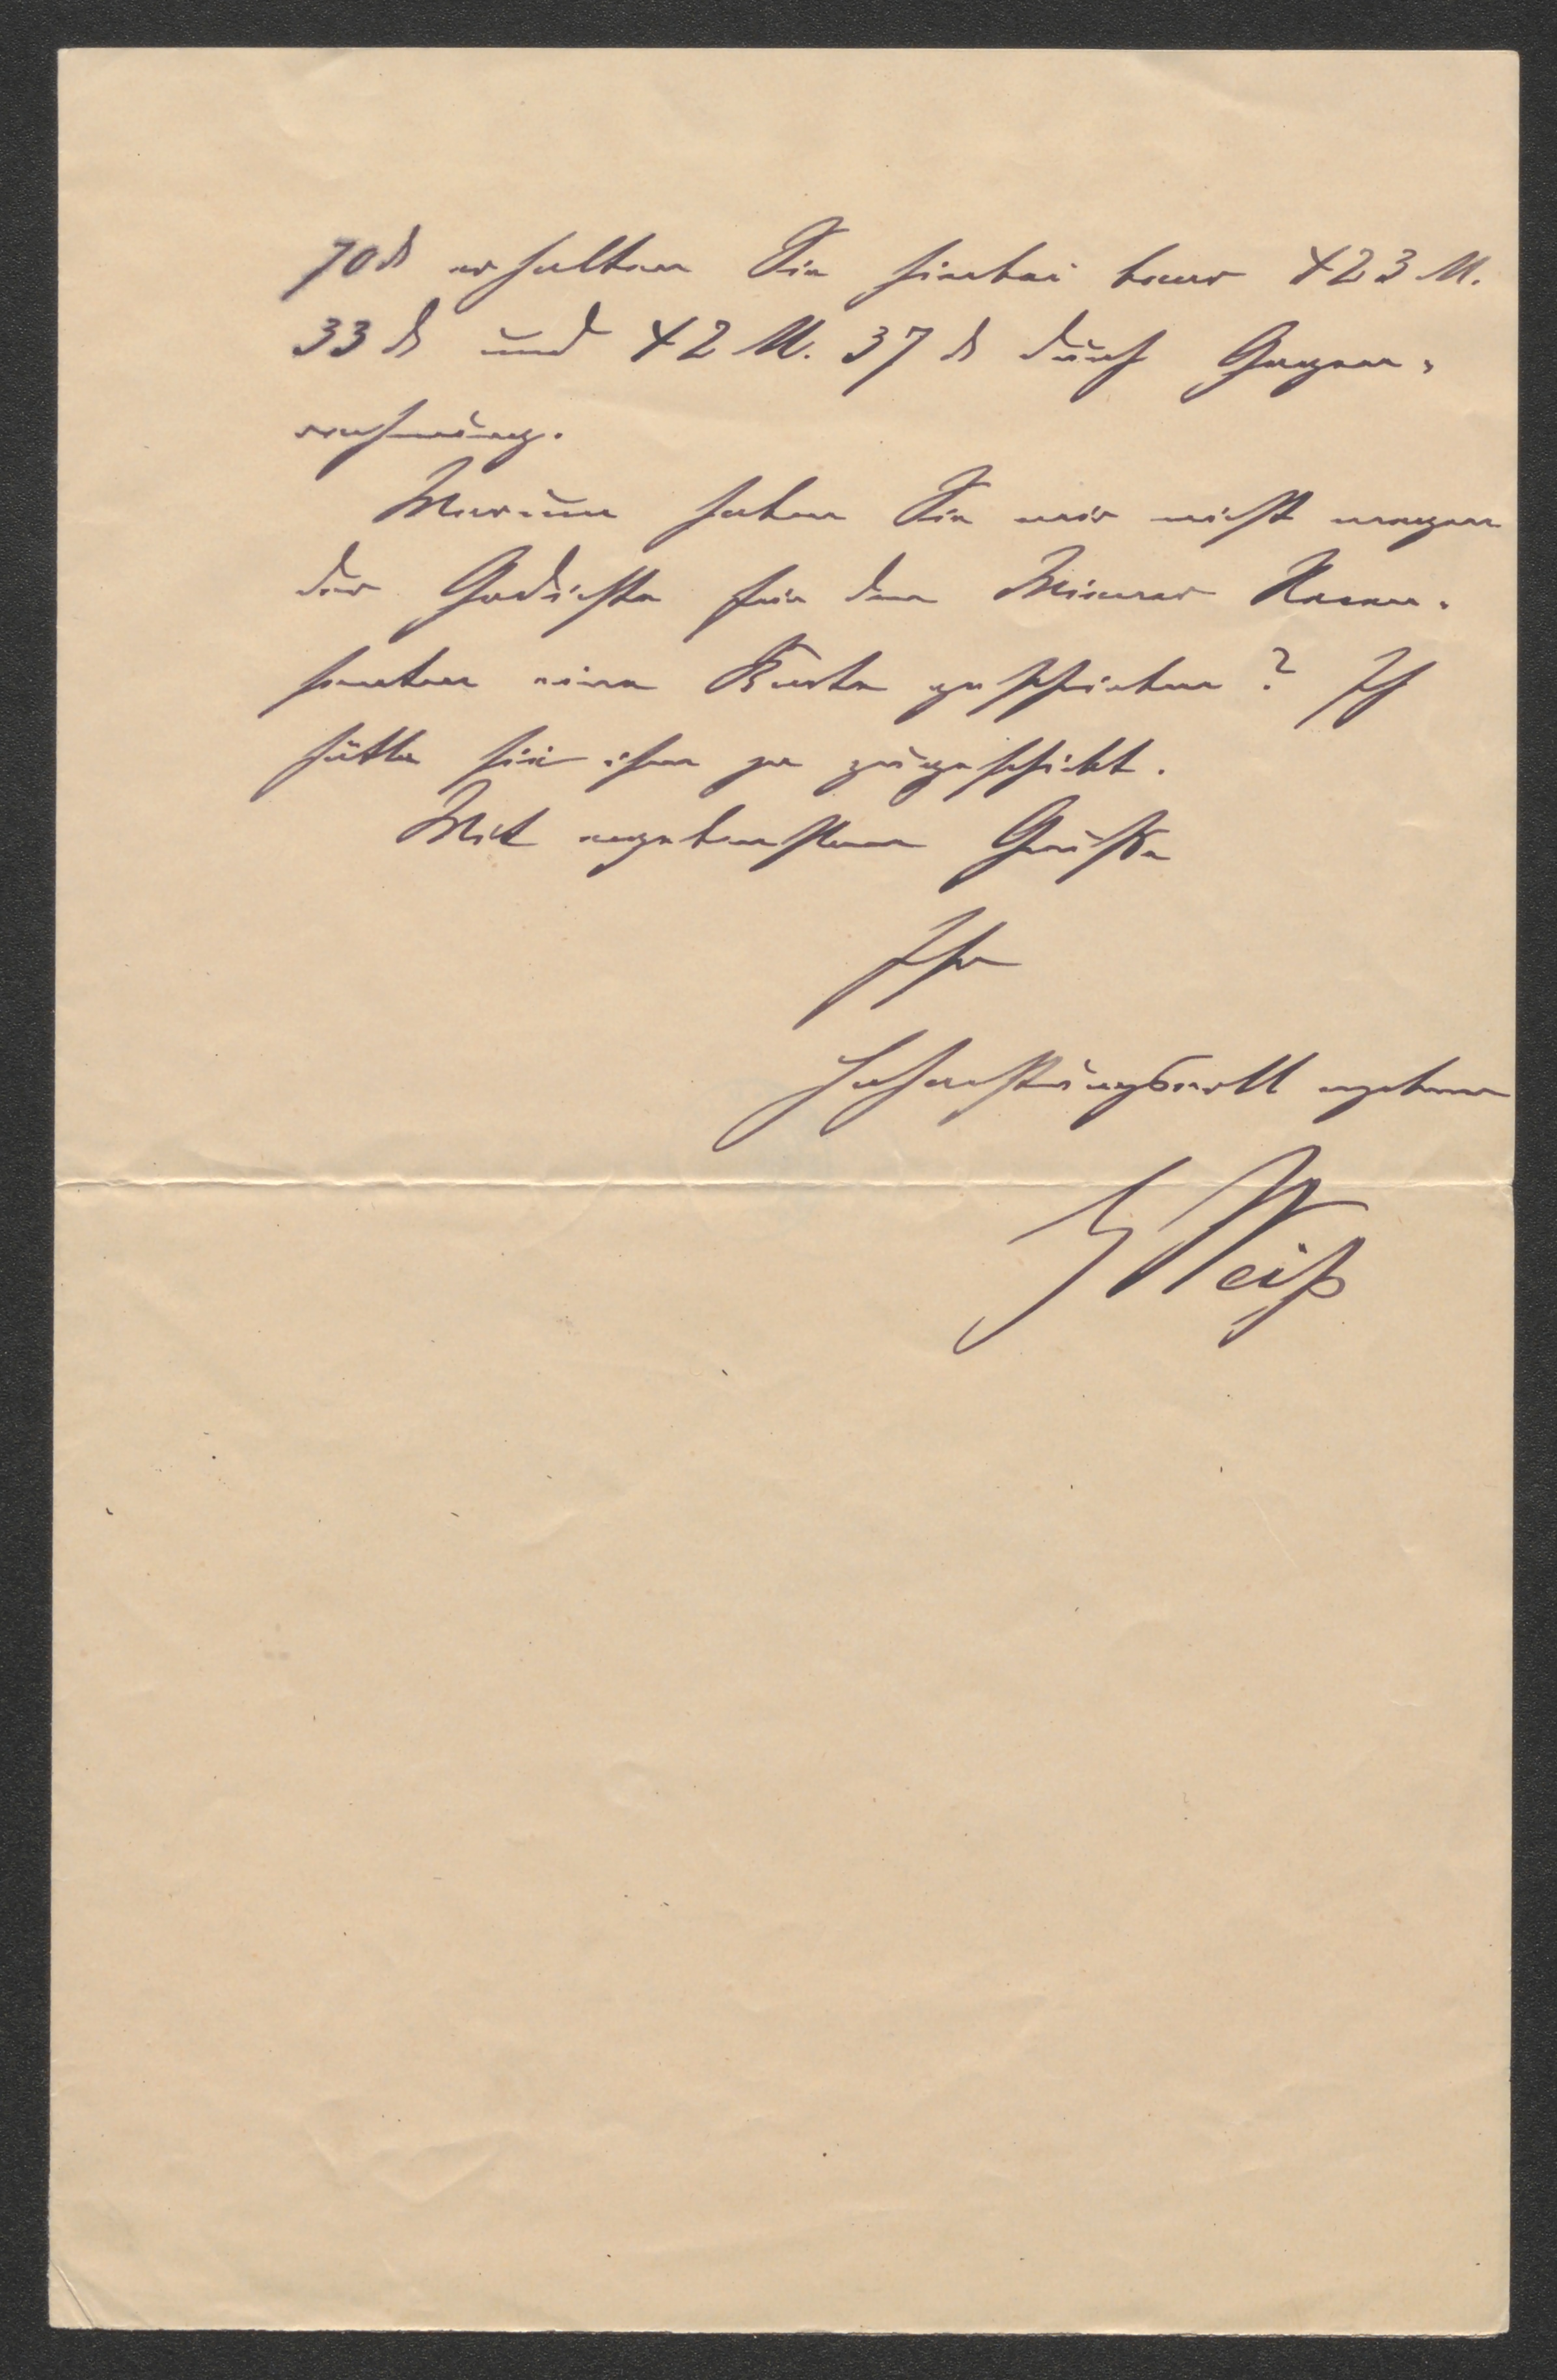 70 ₰ erhalten Sie hierbei baar 423 M.
33 ₰ und 42 M. 37 ₰ durch Gegen-
rechnung.
Warum haben Sie mir nicht wegen
der Gedichte für den Wiener Rezen-
senten eine Karte geschrieben? Ich
hätte sie ihm ja zugeschickt.
Mit ergebensten Grüßen
Ihr
hochachtungsvoll ergebener
Weiß